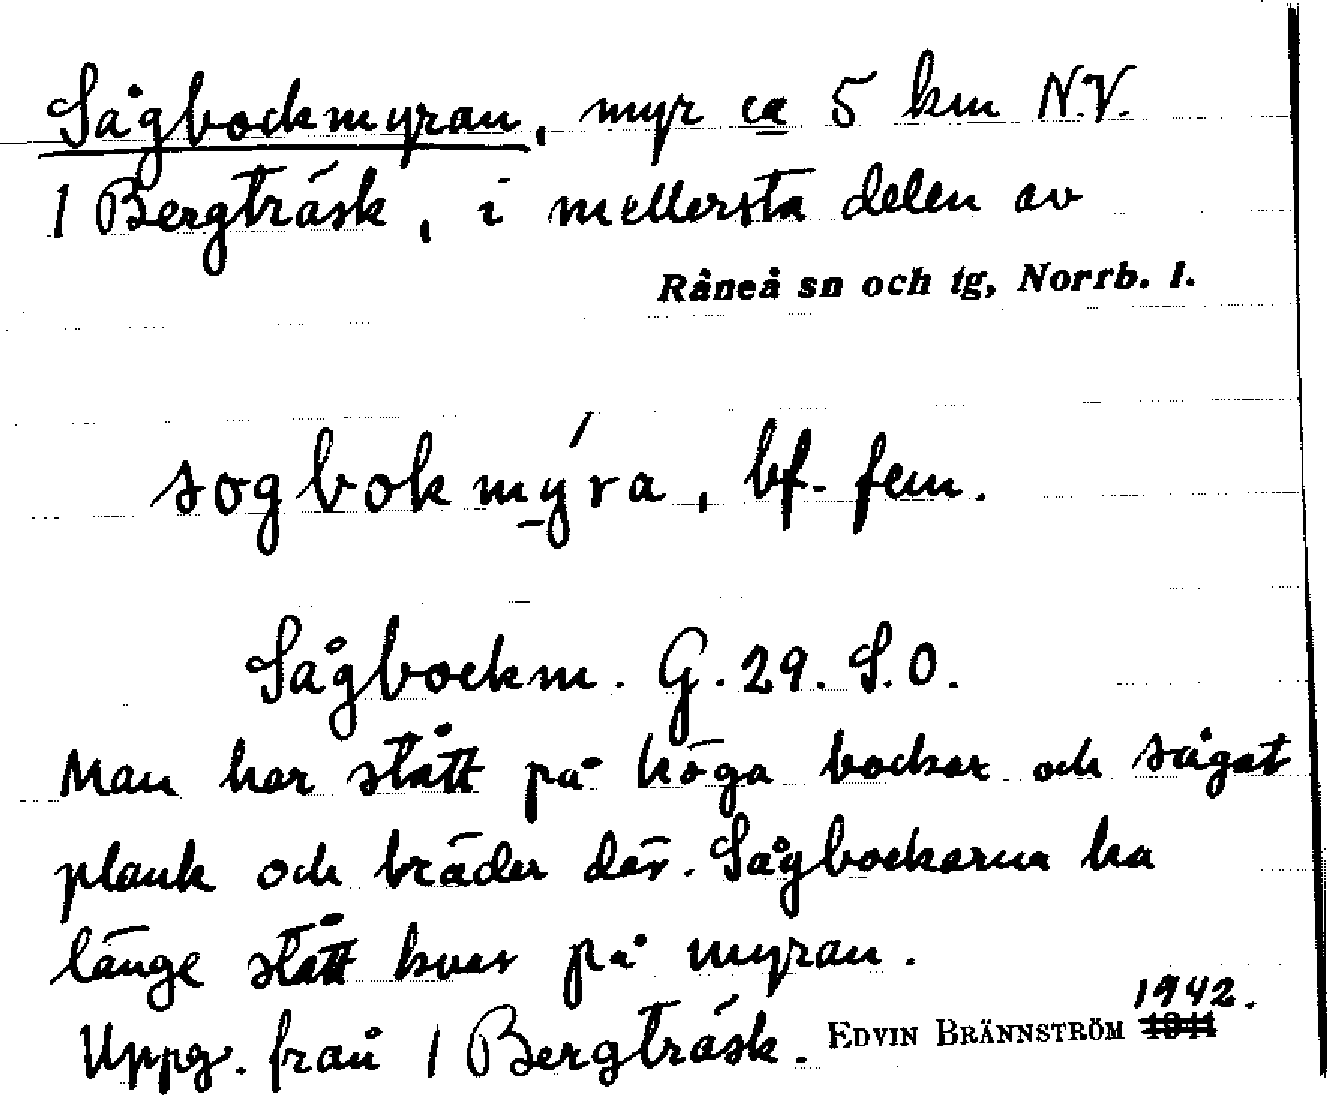 Sågbockmyran, myr ca 5 km N.V.
1 Bergträsk, i mellersta delen av
Råneå sn och tg, Norrb. l.
sogbokmýra, bf. fem.
Sågbockm. G. 29. S.O.
Man har stått på höga bockar och sågat
plank och bräder där. Sågbockarna ha
länge stått kvar på myran.
1942.
Uppg. från 1 Bergträsk. EDVIN BRÄNNSTRÖM 1941